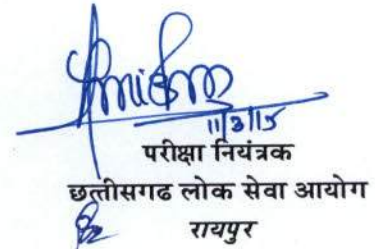 11/3/15
परीक्षा नियंत्रक
छत्तीसगढ लोक सेवा आयोग
रायपुर